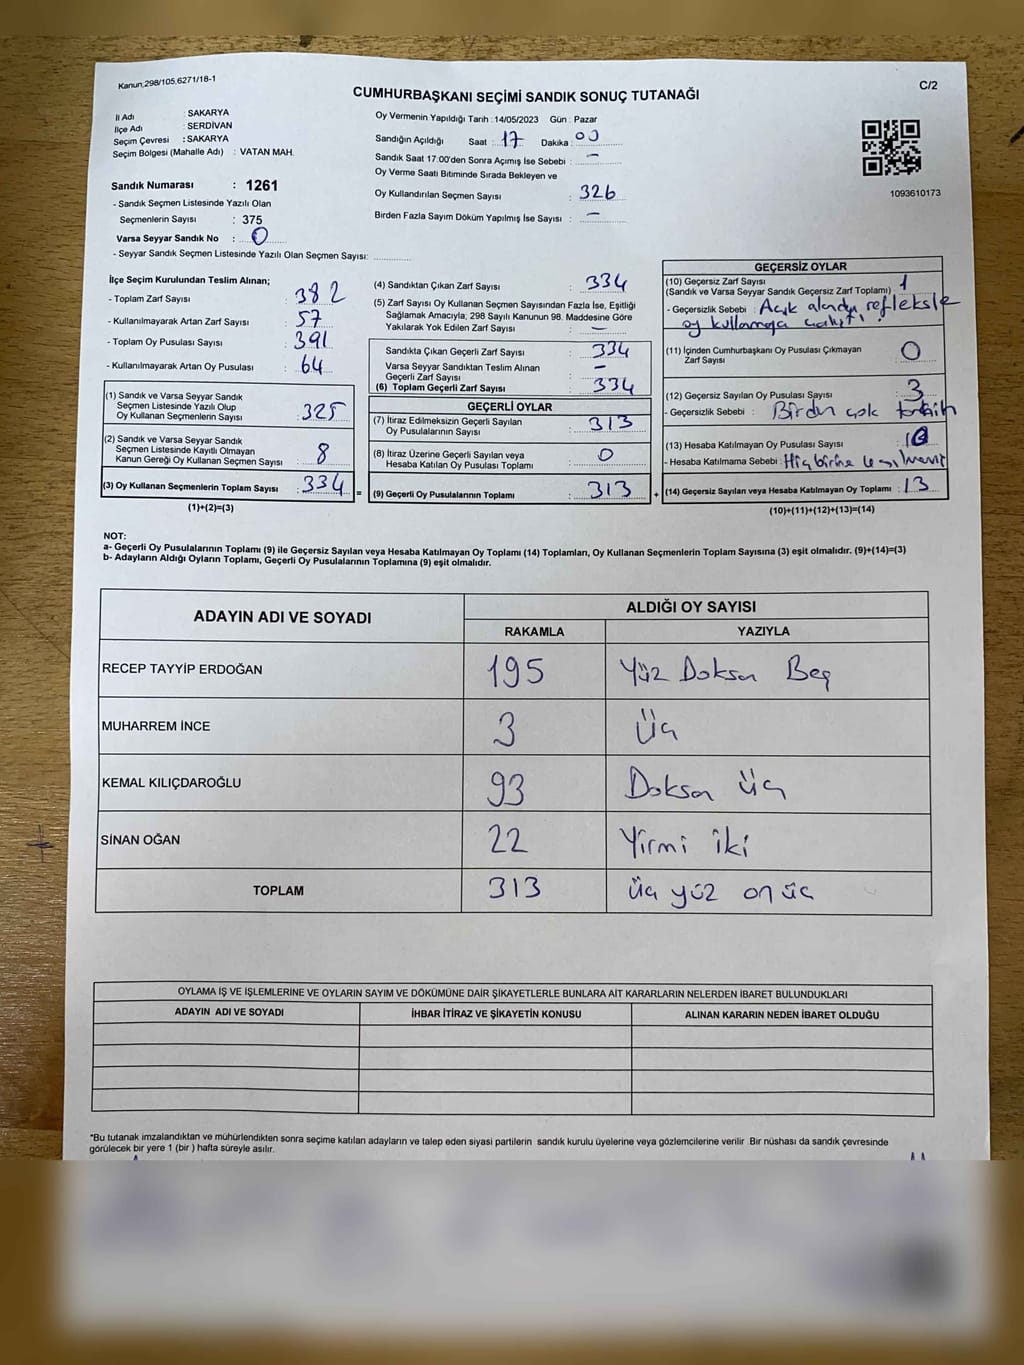 Kanun,298/105,6271/18-1
C/2
CUMHURBAŞKANI SEÇİMİ SANDIK SONUÇ TUTANAĞI
İl Adı : SAKARYA
İlçe Adı : SERDİVAN
Seçim Çevresi : SAKARYA
Seçim Bölgesi (Mahalle Adı) : VATAN MAH.
Sandık Numarası : 1261
- Sandık Seçmen Listesinde Yazılı Olan
Seçmenlerin Sayısı : 375
Varsa Seyyar Sandık No : 0
- Seyyar Sandık Seçmen Listesinde Yazılı Olan Seçmen Sayısı:
Oy Vermenin Yapıldığı Tarih :14/05/2023 Gün : Pazar
Sandığın Açıldığı Saat : 17 Dakika : 00
Sandık Saat 17:00'den Sonra Açımış İse Sebebi : -
Oy Verme Saati Bitiminde Sırada Bekleyen ve
Oy Kullandırılan Seçmen Sayısı : 326
Birden Fazla Sayım Döküm Yapılmış İse Sayısı : -
1093610173
İlçe Seçim Kurulundan Teslim Alınan;
- Toplam Zarf Sayısı : 382
- Kullanılmayarak Artan Zarf Sayısı : 57
- Toplam Oy Pusulası Sayısı : 391
- Kullanılmayarak Artan Oy Pusulası : 64
(1) Sandık ve Varsa Seyyar Sandık
Seçmen Listesinde Yazılı Olup
Oy Kullanan Seçmenlerin Sayısı : 325
(2) Sandık ve Varsa Seyyar Sandık
Seçmen Listesinde Kayıtlı Olmayan
Kanun Gereği Oy Kullanan Seçmen Sayısı : 8
(3) Oy Kullanan Seçmenlerin Toplam Sayısı : 334
(1)+(2)=(3)
(4) Sandıktan Çıkan Zarf Sayısı : 334
(5) Zarf Sayısı Oy Kullanan Seçmen Sayısından Fazla İse, Eşitliği
Sağlamak Amacıyla; 298 Sayılı Kanunun 98. Maddesine Göre
Yakılarak Yok Edilen Zarf Sayısı : -
Sandıkta Çıkan Geçerli Zarf Sayısı : 334
Varsa Seyyar Sandıktan Teslim Alınan
Geçerli Zarf Sayısı : -
(6) Toplam Geçerli Zarf Sayısı : 334
GEÇERLİ OYLAR
(7) İtiraz Edilmeksizin Geçerli Sayılan
Oy Pusulalarının Sayısı : 313
(8) İtiraz Üzerine Geçerli Sayılan veya
Hesaba Katılan Oy Pusulası Toplamı : 0
= (9) Geçerli Oy Pusulalarının Toplamı : 313 +
GEÇERSİZ OYLAR
(10) Geçersiz Zarf Sayısı : 1
(Sandık ve Varsa Seyyar Sandık Geçersiz Zarf Toplamı)
- Geçersizlik Sebebi : Açık alanda refleksle
oy kullanmaya çalıştı.
(11) İçinden Cumhurbaşkanı Oy Pusulası Çıkmayan
Zarf Sayısı : 0
(12) Geçersiz Sayılan Oy Pusulası Sayısı : 3
- Geçersizlik Sebebi : Birden çok tercih
(13) Hesaba Katılmayan Oy Pusulası Sayısı :
- Hesaba Katılmama Sebebi : Hiçbirine
(14) Geçersiz Sayılan veya Hesaba Katılmayan Oy Toplamı : 13
(10)+(11)+(12)+(13)=(14)
NOT:
a- Geçerli Oy Pusulalarının Toplamı (9) ile Geçersiz Sayılan veya Hesaba Katılmayan Oy Toplamı (14) Toplamları, Oy Kullanan Seçmenlerin Toplam Sayısına (3) eşit olmalıdır. (9)+(14)=(3)
b- Adayların Aldığı Oyların Toplamı, Geçerli Oy Pusulalarının Toplamına (9) eşit olmalıdır.
ADAYIN ADI VE SOYADI ALDIĞI OY SAYISI
RAKAMLA YAZIYLA
RECEP TAYYİP ERDOĞAN 195 Yüz Doksan Beş
MUHARREM İNCE 3 Üç
KEMAL KILIÇDAROĞLU 93 Doksan üç
SİNAN OĞAN 22 Yirmi iki
TOPLAM 313 üç yüz on üç
OYLAMA İŞ VE İŞLEMLERİNE VE OYLARIN SAYIM VE DÖKÜMÜNE DAİR ŞİKAYETLERLE BUNLARA AİT KARARLARIN NELERDEN İBARET BULUNDUKLARI
ADAYIN ADI VE SOYADI İHBAR İTİRAZ VE ŞİKAYETİN KONUSU ALINAN KARARIN NEDEN İBARET OLDUĞU
*Bu tutanak imzalandıktan ve mühürlendikten sonra seçime katılan adayların ve talep eden siyasi partilerin sandık kurulu üyelerine veya gözlemcilerine verilir .Bir nüshası da sandık çevresinde
görülecek bir yere 1 (bir ) hafta süreyle asılır.